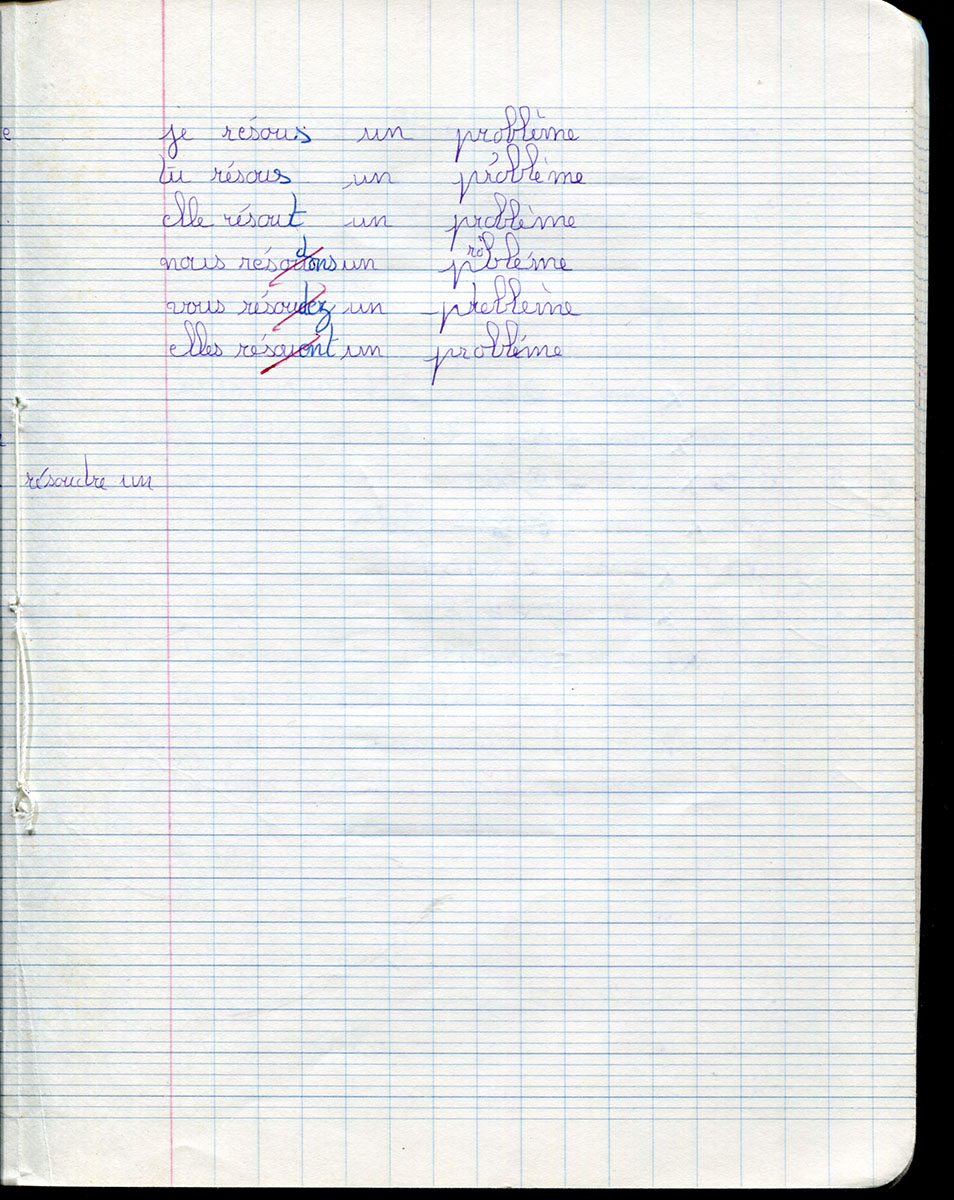 je résous un problème
tu résous un problème
elle résout un problème
nous résoudons un problème
vous résoudez un problème
elles un problème
résoudre un